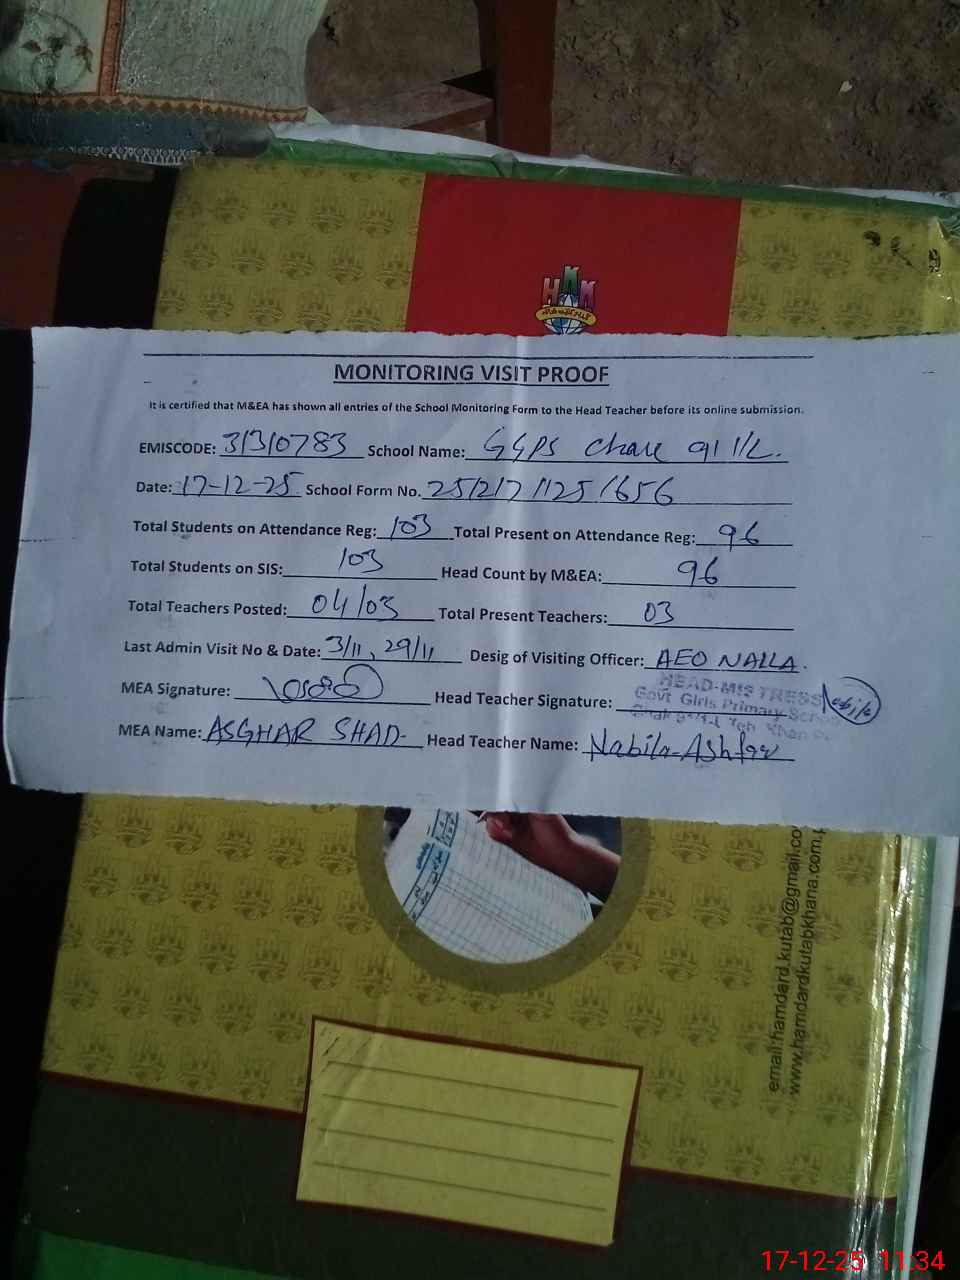 HKK
MONITORING VISIT PROOF
It is certified that M&EA has shown all entries of the School Monitoring Form to the Head Teacher before its online submission.
EMISCODE: 31310783 School Name: GGPS Chak 91 1/L.
Date: 17-12-25 School Form No. 25121711251656
Total Students on Attendance Reg: 103 Total Present on Attendance Reg: 96
Total Students on SIS: 103 Head Count by M&EA: 96
Total Teachers Posted: 04/03 Total Present Teachers: 03
Last Admin Visit No & Date: 3/11, 29/11 Desig of Visiting Officer: AEO NAILA.
MEA Signature: Head Teacher Signature:
HEAD-MISTRESS
Govt Girls Primary School
MEA Name: ASGHAR SHAD- Head Teacher Name: Nabila-Ashfaq
email:hamdard.kutab@gmail.co
www.hamdardkutabkhana.com.p
17-12-25 11:34